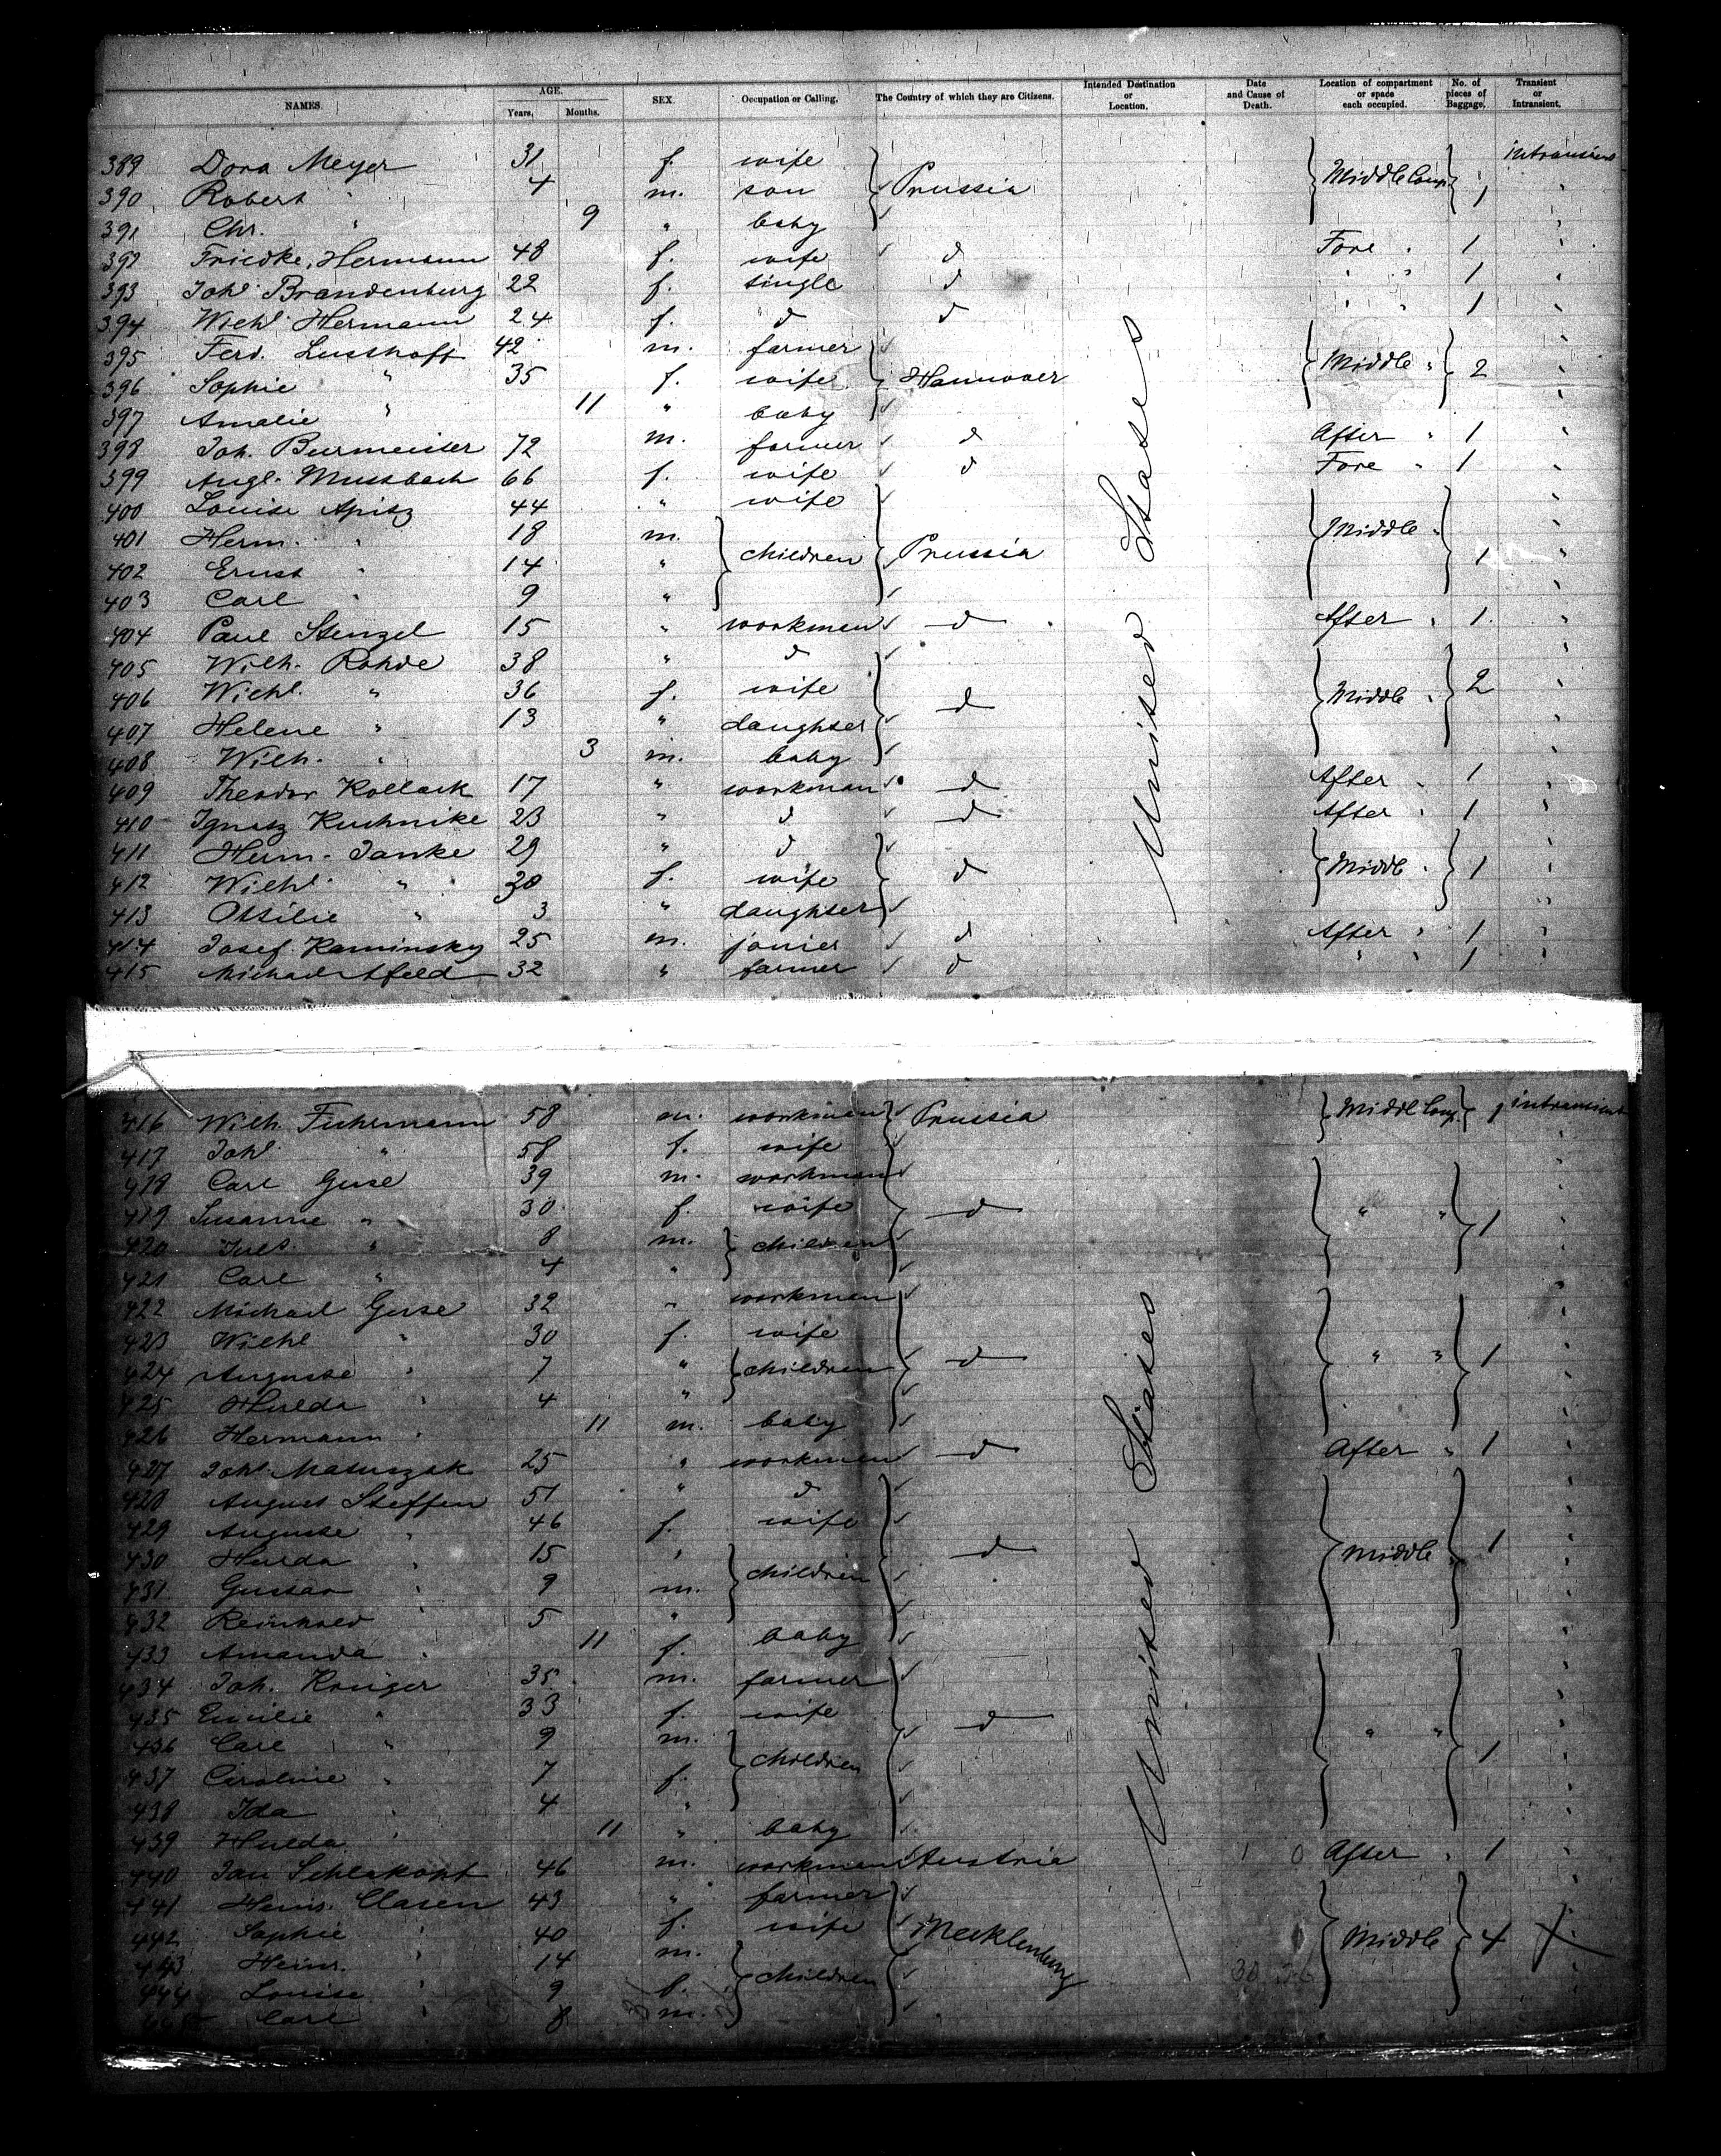 NAMES. AGE. Years, Months. SEX Occupation or Calling. The Country of which they are Citizens. Intended Destination or Location. Date and Cause of Death. Location of compartment or space each occupied. No. of pieces of Baggage. Transient or Intransient.
389 Dora Meyer 31 f. wife intransient
390 Robert " 4 m. son Prussia Middle Comp 1 "
391 Chr. " 9 " baby "
392 Friedke. Hermann 48 f. wife d Fore " 1 "
393 Johe Brandenburg 22 f. single d " " 1 "
394 Wilhe Hermann 24 f. d d " " 1 "
395 Ferd. Lusthoff 42 m. farmer "
396 Sophie " 35 f. wife Hannover Middle " 2 "
397 Amalie " 11 " baby "
398 Joh. Burmeister 72 m. farmer d After " 1 "
399 Augl. Mussbach 66 f. wife d Fore " 1
400 Louise Apitz 44 " wife "
401 Herm. " 18 m. Middle " "
402 Ernst " 14 " children Prussia 1 "
403 Carl " 9 " "
404 Paul Stenzel 15 " workman d After " 1 "
405 Wilh. Rohde 38 " d "
406 Wilhe " 36 f. wife d Middle " 2 "
407 Helene " 13 " daughter "
408 Wilh. " 3 m. baby "
409 Theodor Kollack 17 " workman d After " 1 "
410 Ignatz Kuchnike 23 " d d After " 1 "
411 Herm. Janke 29 " d "
412 Wilhe " 30 f. wife d Middle " 1 "
413 Ottilie " 3 " daughter "
414 Josef Kaminsky 25 m. jonier d After " 1 "
415 Michael 32 " farmer d " " 1 "
United States
416 Wilh. Fuhrmann 58 m. workman Prussia Middl Comp. 1 intransient
417 Johe " 58 f. wife "
418 Carl Guse 39 m. workman "
419 Susanne " 30 f. wife d " " 1 "
420 Juls. " 8 m. children "
421 Carl " 4 " "
422 Michael Guse 32 " workman "
423 Wilhe " 30 f. wife "
424 Auguste " 7 " children d " " 1 "
425 Hulda " 4 " "
426 Hermann " 11 m. baby "
427 Johs Matuszak 25 " workman d After " 1 "
428 August Steffen 51 " d "
429 Auguste " 46 f. wife "
430 Hulda " 15 " children d Middle " 1 "
431 Gustav " 9 m. "
432 Reinhold " 5 " "
433 Amanda " 11 f. baby "
434 Joh. Krüger 35 m. farmer "
435 Emilie " 33 f. wife d "
436 Carl " 9 m. " " "
437 Caroline " 7 f. children 1 "
438 Ida " 4 " "
439 Hulda " 11 " baby "
440 Jan 46 m. workman Austria After " 1 "
441 Heinr. Clasen 43 " farmer "
442 Sophie " 40 f. wife Mecklenburg Middle 4 "
443 Heinr. " 14 m. "
444 Louise " 9 f. children "
Carl " 8 m.
United States